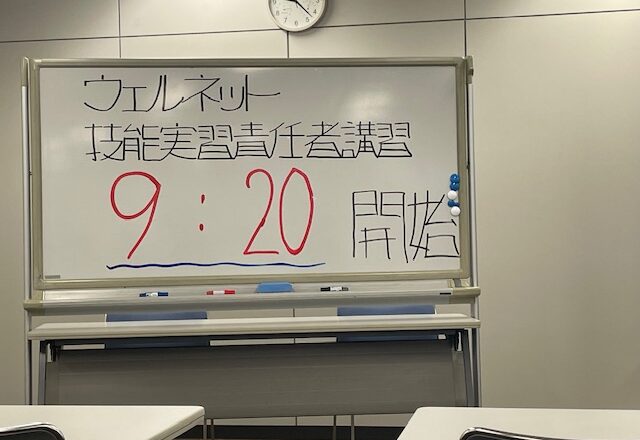 ウェルネット
技能実習責任者講習
9:20 開始